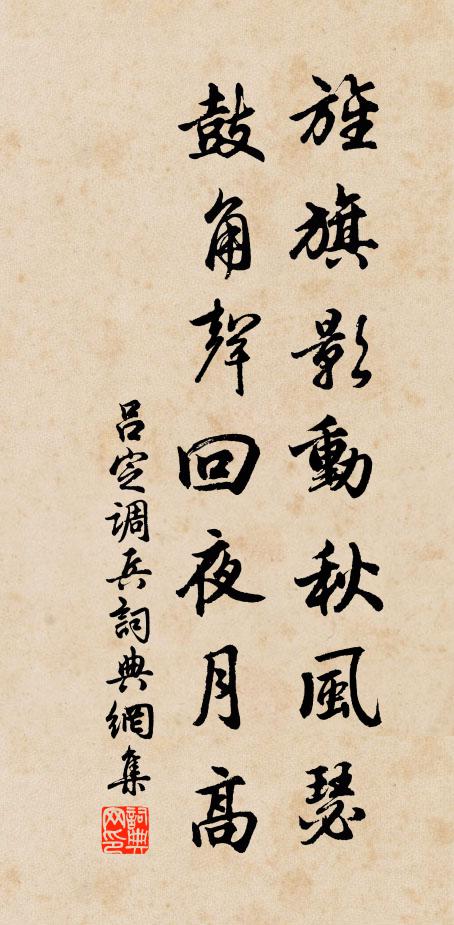 旌旗影動秋風瑟
鼓角聲回夜月高
吕定調兵詞典網集
詞典网印